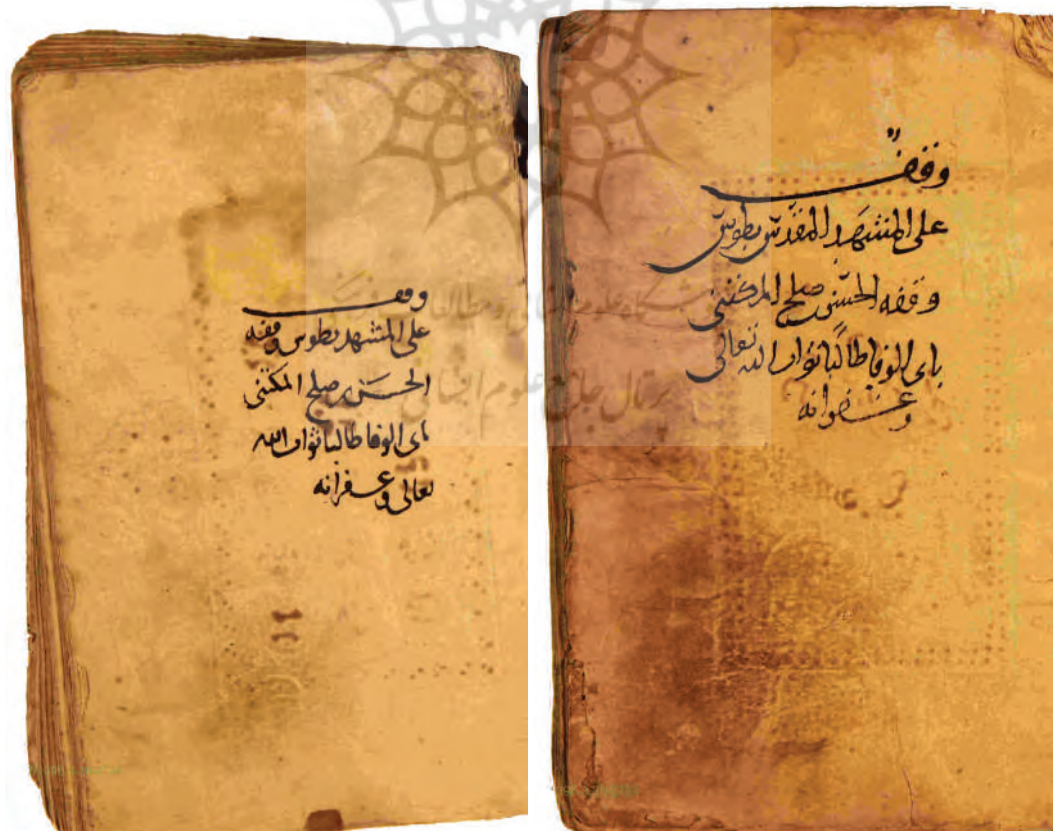 وقف
على المشهد المقدس بطوس
وقفه الحسن صلح المكتنى
بابى الوفا طالبا ثواب الله تعالى
وغفرانه
وقف
على المشهد بطوس وقفه
الحسن بن صلح المكتنى
بابى الوفا طالبا ثواب الله
تعالى وغفرانه
پرتال جامع علوم انسانی